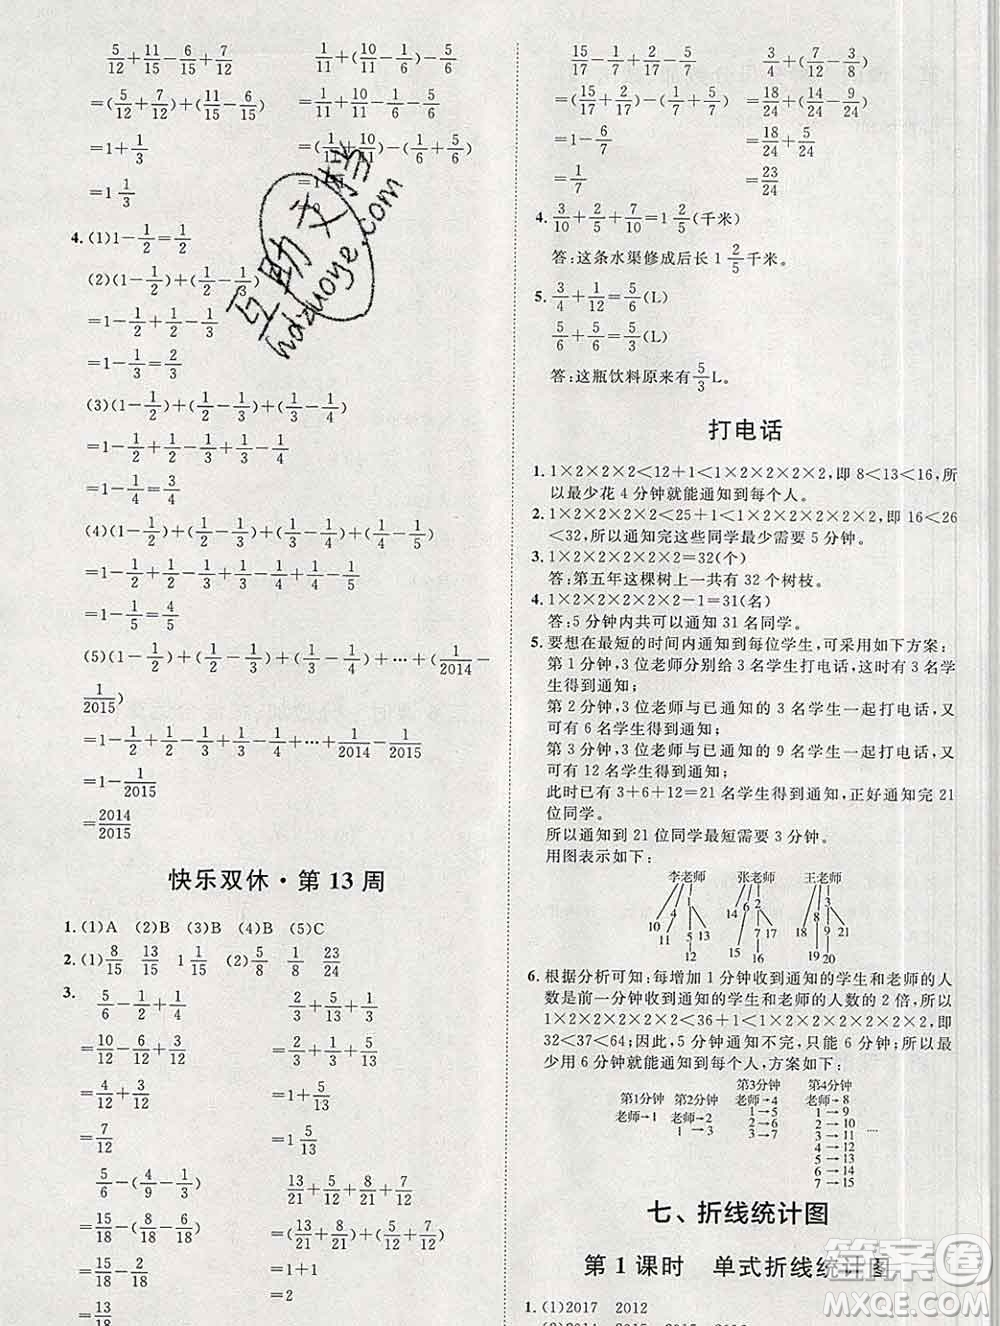 5/12+11/15-6/15+7/12
=(5/12+7/12)+(11/15-6/15)
=1+1/3
=1 1/3
1/11+(10/11-1/6)-5/6
=1/11+10/11-1/6-5/6
=(1/11+10/11)-(1/6+5/6)
4.(1)1-1/2=1/2
(2)(1-1/2)+(1/2-1/3)
=1-1/2+1/2-1/3
=1-1/3=2/3
(3)(1-1/2)+(1/2-1/3)+(1/3-1/4)
=1-1/2+1/2-1/3+1/3-1/4
=1-1/4=3/4
(4)(1-1/2)+(1/2-1/3)+(1/3-1/4)+(1/4-1/5)
=1-1/2+1/2-1/3+1/3-1/4+1/4-1/5
=1-1/5=4/5
(5)(1-1/2)+(1/2-1/3)+(1/3-1/4)+…+(1/2014-
1/2015)
=1-1/2+1/2-1/3+1/3-1/4+…+1/2014-1/2015
=1-1/2015
=2014/2015
快乐双休·第13周
1.(1)A (2)B (3)B (4)B (5)C
2.(1)8/15 13/15 1 1/15 (2)5/8 1/8 23/24
3.
5/6-1/2+3/12
=10/12-6/12+3/12
=4/12+3/12
=7/12
2/3+5/13+1/3
=2/3+1/3+5/13
=1+5/13
=1 5/13
5/6-(4/9-1/6)
=15/18-(8/18-3/18)
=15/18-5/18
13/21+5/12+8/21+7/12
=(13/21+8/21)+(5/12+7/12)
=1+1
=2
15/17-1/7+2/17-5/7
=(15/17+2/17)-(1/7+5/7)
=1-6/7
=1/7
3/4+(7/12-3/8)
=18/24+(14/24-9/24)
=18/24+5/24
=23/24
4. 3/10+2/5+7/10=1 2/5(千米)
答:这条水渠修成后长1 2/5千米。
5. 3/4+1/12=5/6(L)
5/6+5/6=5/3(L)
答:这瓶饮料原来有5/3L。
打电话
1. 1×2×2×2<12+1<1×2×2×2×2,即8<13<16,所
以最少花4分钟就能通知到每个人。
2. 1×2×2×2×2<25+1<1×2×2×2×2×2,即16<26
<32,所以通知完这些同学最少需要5分钟。
3. 1×2×2×2×2×2=32(个)
答:第五年这棵树上一共有32个树枝。
4. 1×2×2×2×2×2-1=31(名)
答:5分钟内共可以通知31名同学。
5. 要想在最短的时间内通知到每位学生,可采用如下方案:
第1分钟,3位老师分别给3名学生打电话,这时有3名学
生得到通知;
第2分钟,3位老师与已通知的3名学生一起打电话,又
可有6名学生得到通知;
第3分钟,3位老师与已通知的9名学生一起打电话,又
可有12名学生得到通知;
此时已有3+6+12=21名学生得到通知,正好通知完21
位同学。
所以通知到21位同学最短需要3分钟。
用图表示如下:
李老师 张老师 王老师
6. 根据分析可知:每增加1分钟收到通知的学生和老师的人
数是前一分钟收到通知的学生和老师的人数的2倍,所以
1×2×2×2×2×2<36+1<1×2×2×2×2×2×2,即
32<37<64;因此,5分钟通知不完,只能6分钟,所以最
少用6分钟就能通知到每个人,方案如下:
第1分钟 第2分钟 第3分钟 第4分钟
老师→1 老师→2 老师→4 老师→8
1→3 1→5 1→9
2→6 2→10
3→7 3→11
4→12
5→13
6→14
7→15
……
七、折线统计图
第1课时 单式折线统计图
1.(1)2017 2012
答案圈
MXQE.COM
互助文档
hdzuoye.com